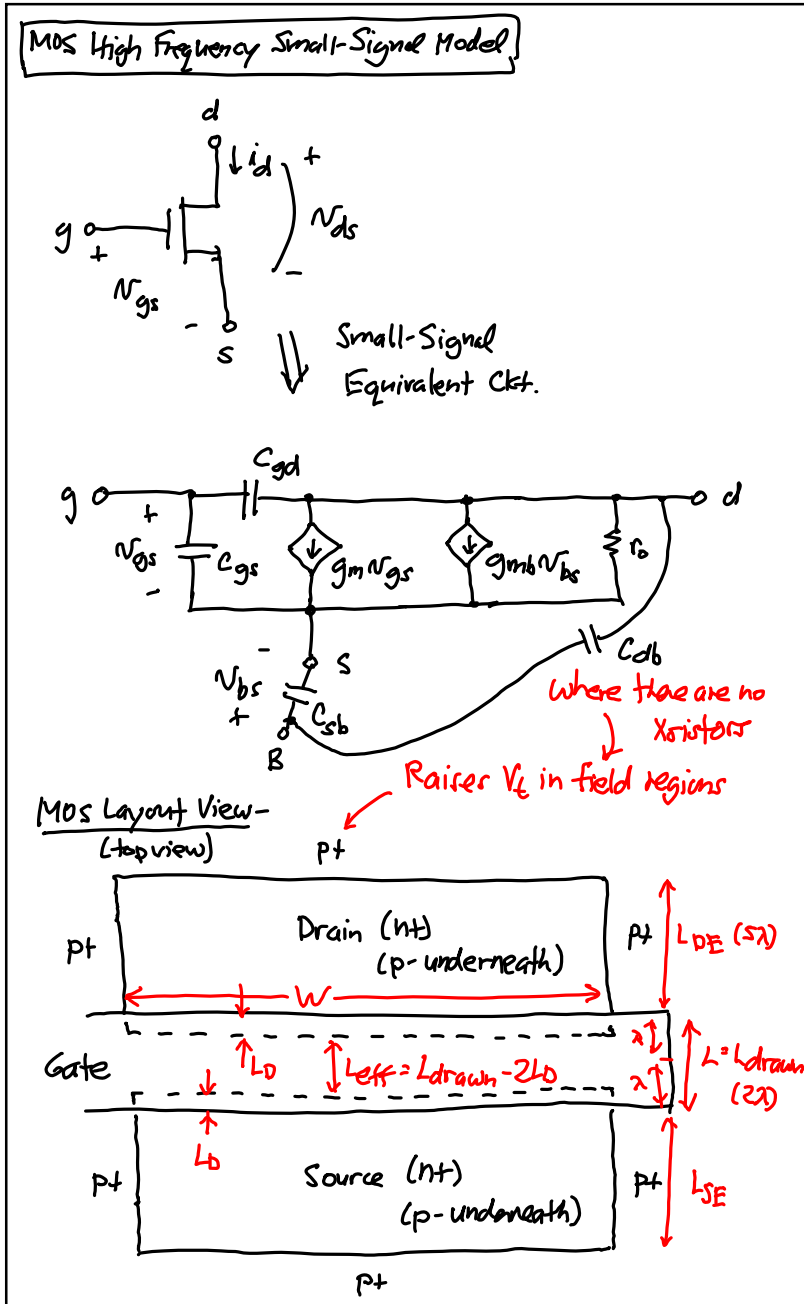 MOS High Frequency Small-Signal Model
d
i_d
+
g
+
v_ds
v_gs
-
-
s
Small-Signal
Equivalent Ckt.
C_gd
g
d
+
v_gs
C_gs
g_m v_gs
g_mb v_bs
r_o
-
-
S
C_db
v_bs
C_sb
+
B
where there are no
Xsistors
Raises V_t in field regions
MOS Layout View-
(top view)
p+
Drain (n+)
p+
p+
L_DE (5λ)
(p- underneath)
W
λ
Gate
L_D
L_eff = L_drawn - 2L_D
L = L_drawn
λ
(2λ)
L_D
Source (n+)
p+
p+
L_SE
(p- underneath)
p+